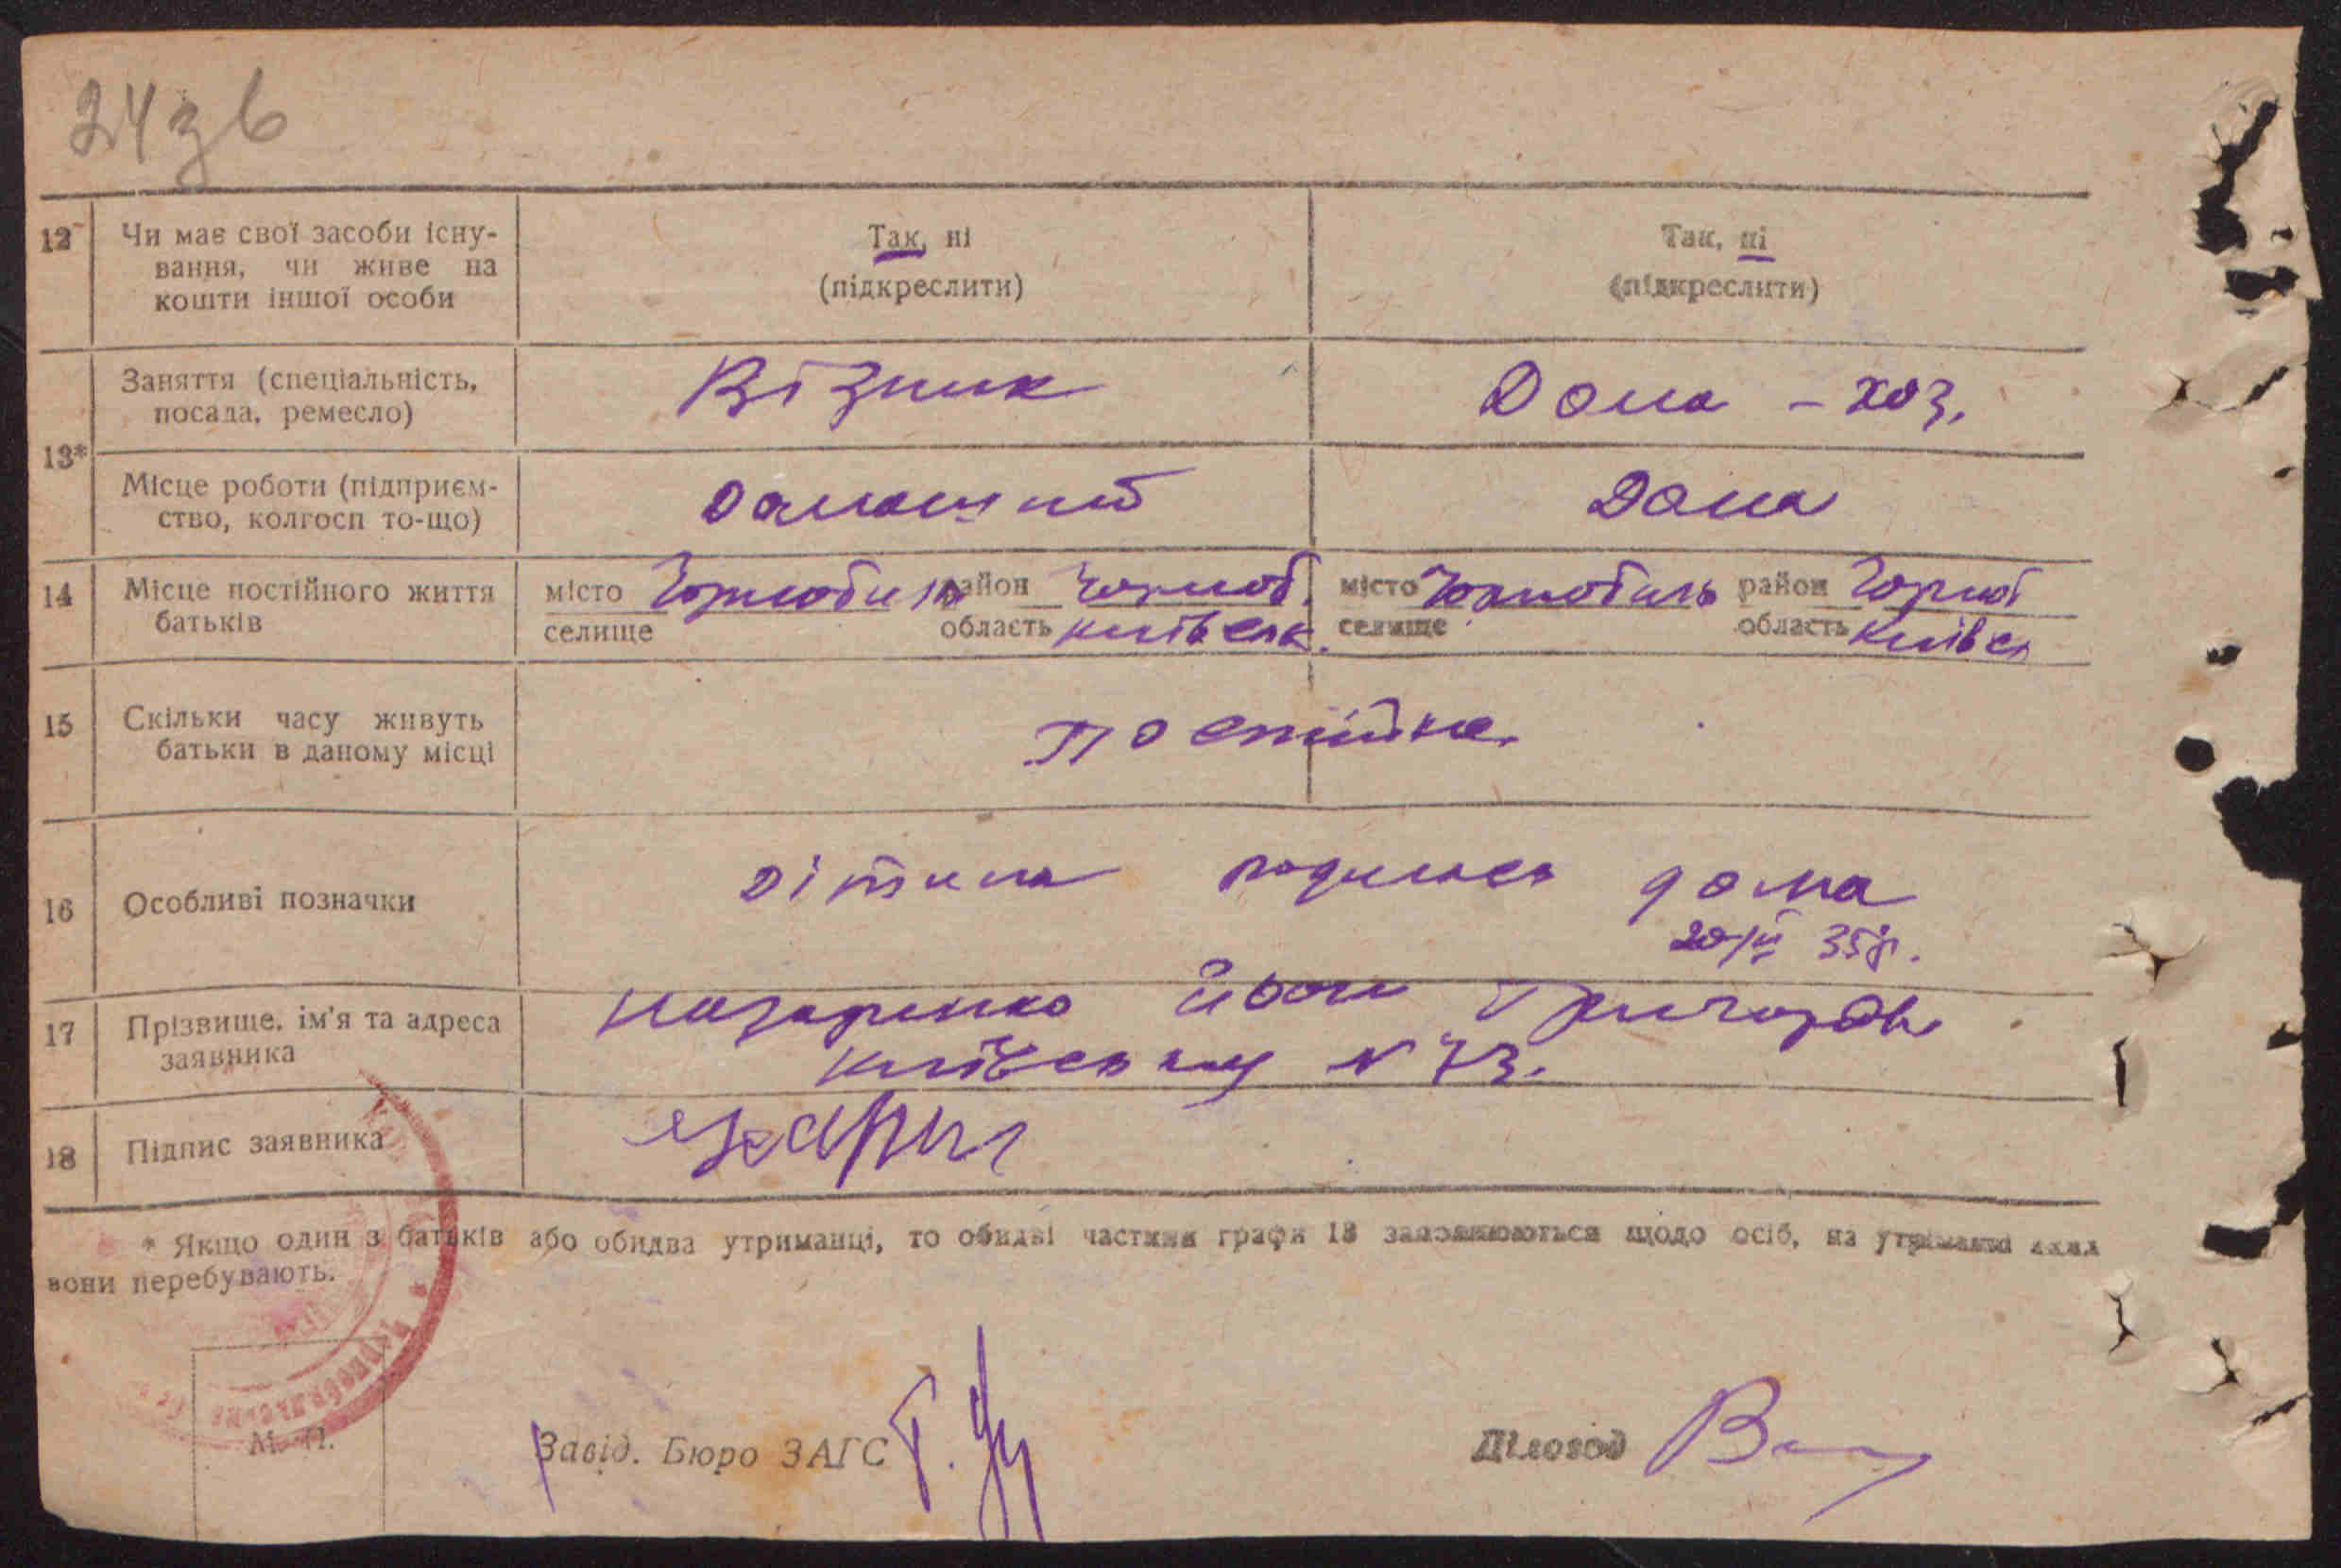 24зв
12 Чи має свої засоби існу- Так, ні Так, ні
вання, чи живе на
кошти іншої особи (підкреслити) (підкреслити)
Заняття (спеціальність, Візник Дома – хоз.
посада, ремесло)
13*
Місце роботи (підприєм- Дома
ство, колгосп то-що)
14 Місце постійного життя місто Чорнобиль район Чорноб. місто Чорнобиль район Чорноб
батьків селище область Київськ. селище область Київськ
15 Скільки часу живуть Постійно
батьки в даному місці
16 Особливі позначки Дітина родилась дома
35г.
17 Прізвище, ім'я та адреса Назаренко Іван Григоров
заявника Київська N 73.
18 Підпис заявника
* Якщо один з батьків або обидва утриманці, то обидві частини графи 13 заповнюються щодо осіб, на утриманні яких
вони перебувають.
М. П.
Завід. Бюро ЗАГС Діловод